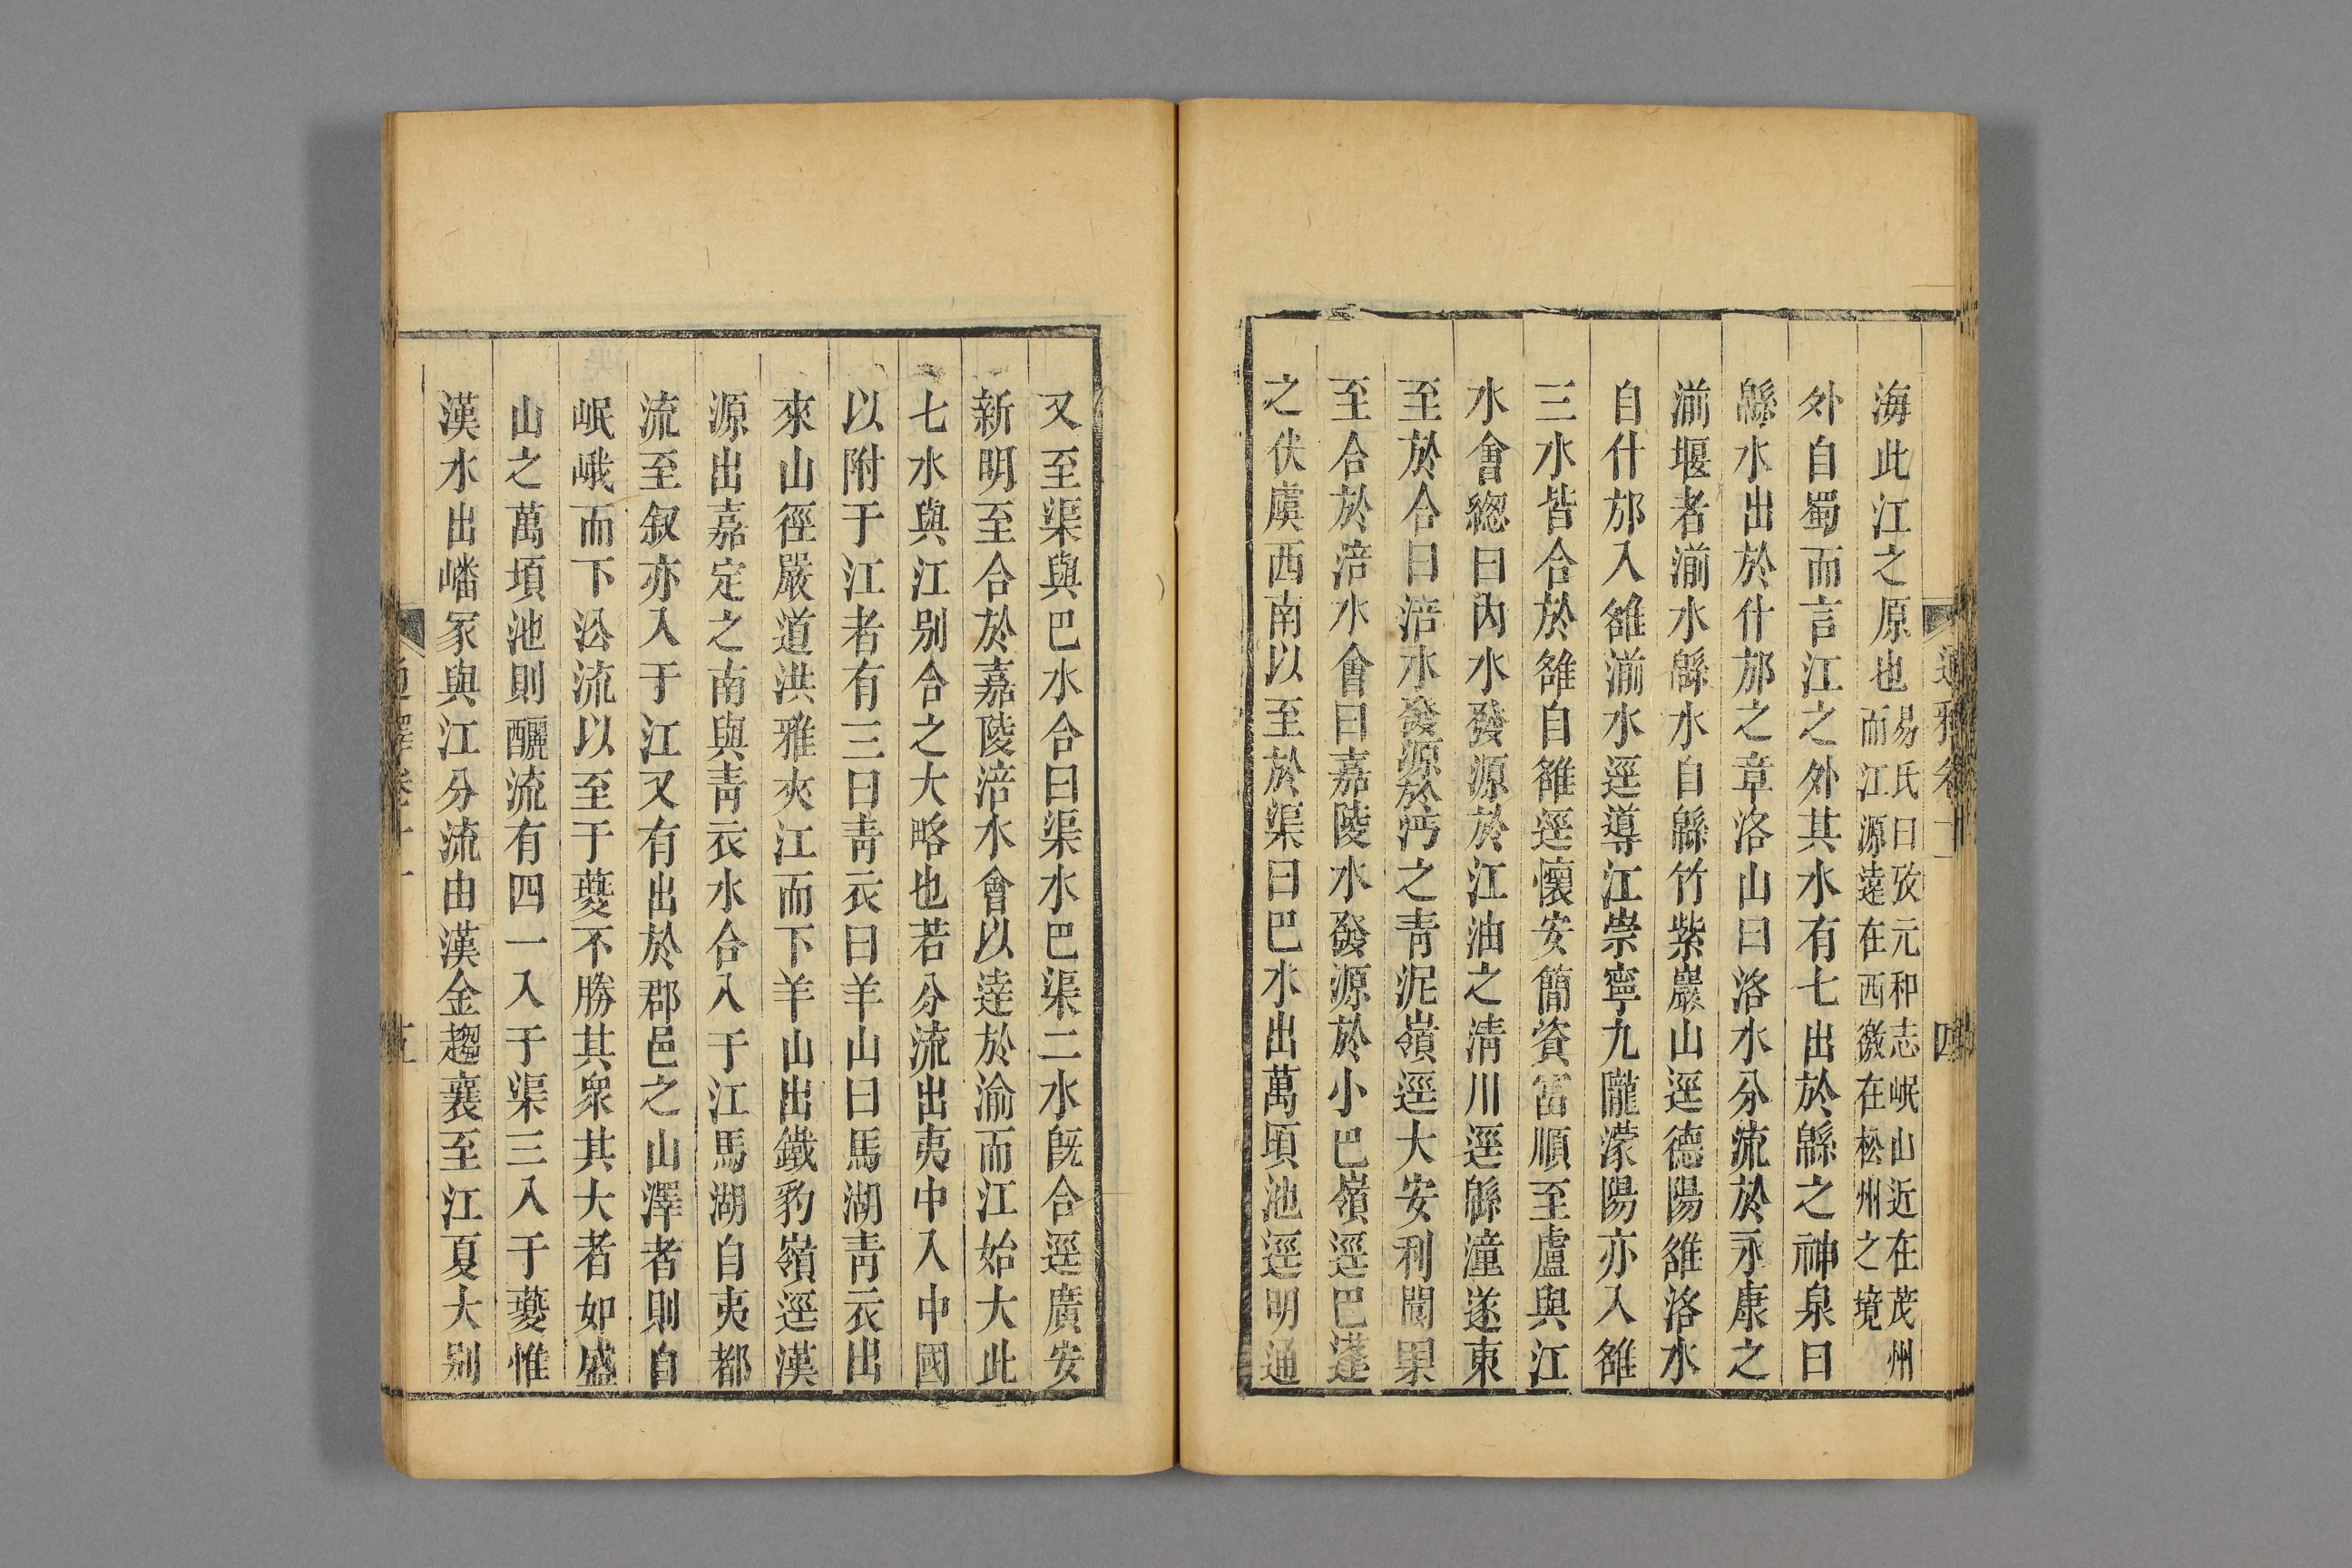 海此江之原也易氏曰攷元和志岷山近在茂州
而江源遠在西徼在松州之境
外自蜀而言江之外其水有七出於緜之神泉曰
緜水出於什邡之章洛山曰洛水分流於永康之
湔堰者湔水緜水自緜竹紫巖山逕德陽雒洛水
自什邡入雒湔水逕導江崇寧九隴濛陽亦入雒
三水皆合於雒自雒逕懷安簡資富順至盧與江
水會緫曰內水發源於江油之淸川逕緜潼遂東
至於合曰涪水發源於沔之靑泥嶺逕大安利閬果
至合於涪水會曰嘉陵水發源於小巴嶺逕巴蓬
之伏虞西南以至於渠曰巴水出萬頃池逕明通
又至渠與巴水合曰渠水巴渠二水旣合逕廣安
新明至合於嘉陵涪水會以達於渝而江始大此
七水與江别合之大略也若分流出夷中入中國
以附于江者有三曰靑衣曰羊山曰馬湖靑衣出
來山徑嚴道洪雅夾江而下羊山出鐵豹嶺逕漢
源出嘉定之南與靑衣水合入于江馬湖自夷都
流至叙亦入于江又有出於郡邑之山澤者則自
岷峨而下㳂流以至于夔不勝其衆其大者如盛
山之萬項池則釃流有四一入于渠三入于夔惟
漢水出嶓冢與江分流由漢金趨襄至江夏大别